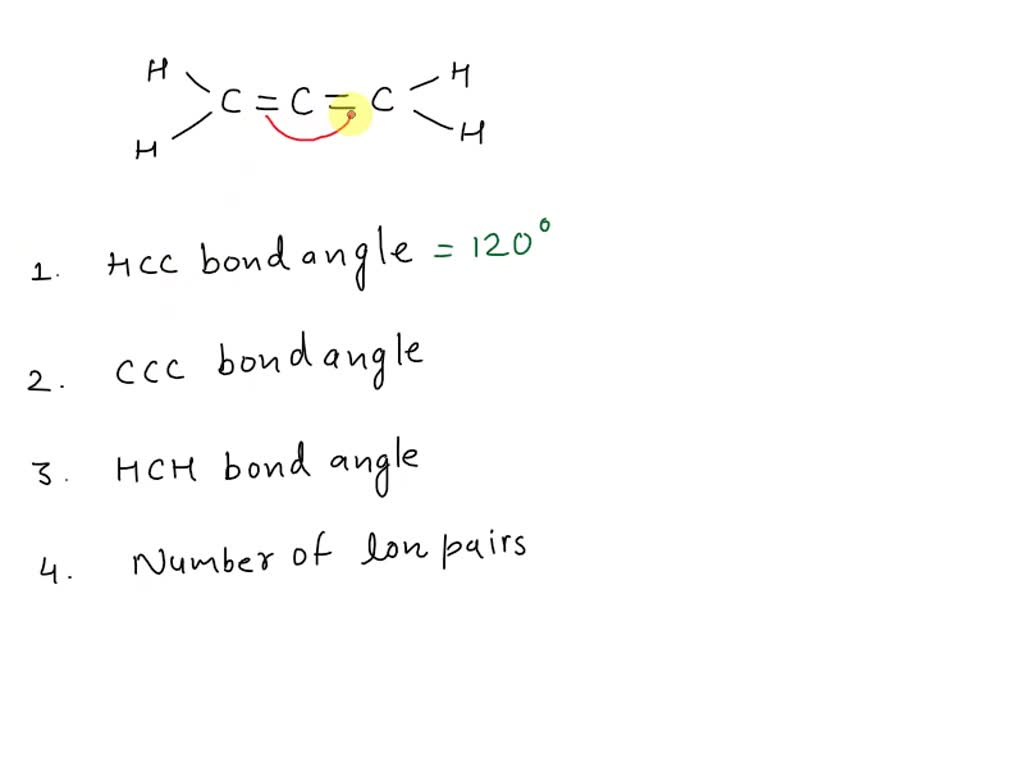 H H
C = C = C
H H
1. HCC bond angle = 120°
2. CCC bond angle
3. HCH bond angle
4. Number of lon pairs